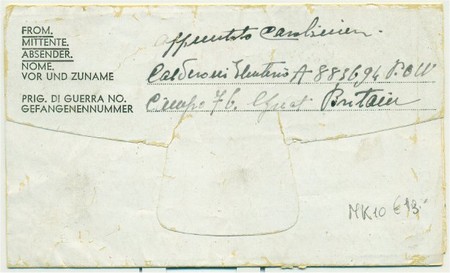 FROM.
MITTENTE.
ABSENDER.
NOME.
VOR UND ZUNAME
PRIG. DI GUERRA NO.
GEFANGENENNUMMER
appuntato Carabinieri.
Calderoni Eleuterio A 885694 P.O.W
Campo 76. Great Britain
MK10 €